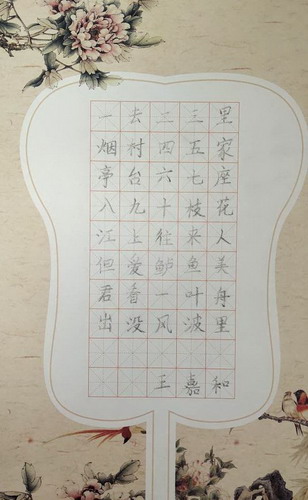 一去二三里
烟村四五家
亭台六七座
八九十枝花
江上往来人
但爱鲈鱼美
君看一叶舟
出没风波里
王嘉和